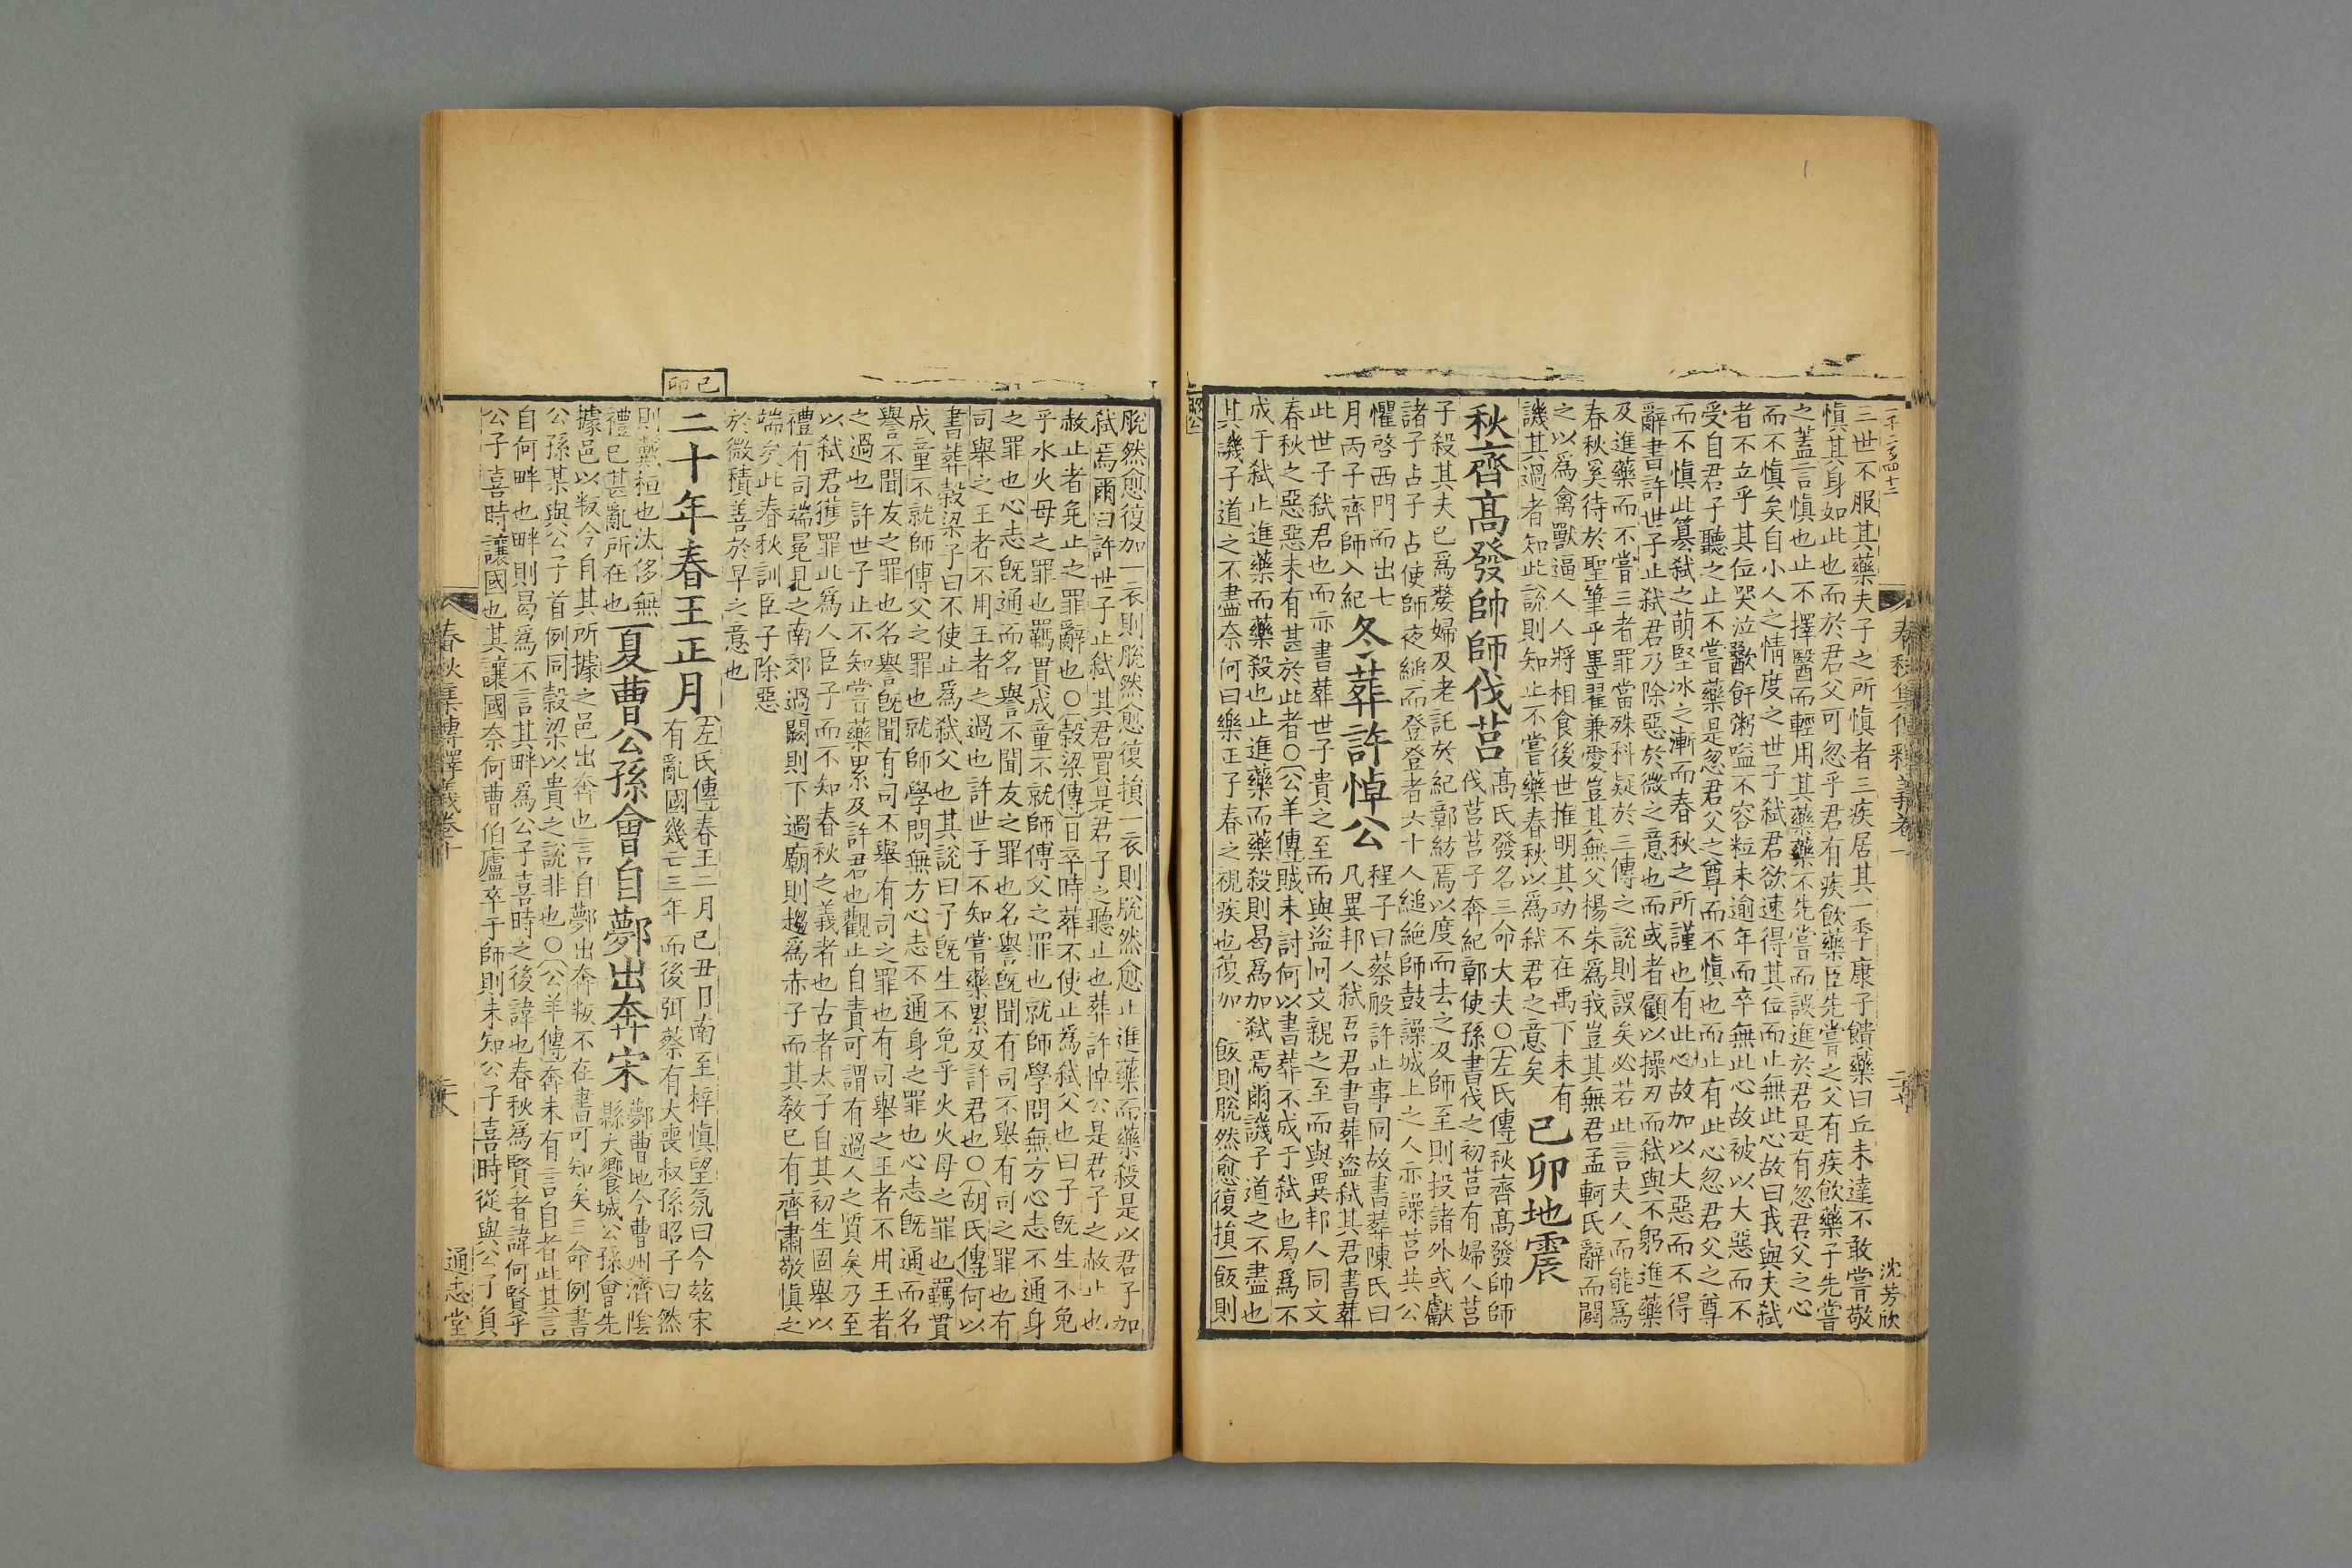 三世不服其藥夫子之所慎者三疾居其一季康子饋藥曰丘未達不敢嘗敬
慎其身如此也而於君父可忽乎君有疾飲藥臣先嘗之父有疾飲藥子先嘗
之蓋言慎也止不擇醫而輕用其藥藥不先嘗而誤進於君是有忽君父之心
而不慎矣自小人之情度之世子弑君欲速得其位而止無此心故曰我與夫弑
者不立乎其位哭泣歠飦粥嗌不容粒未逾年而卒無此心故被以大惡而不
受自君子聽之止不嘗藥是忽君父之尊而不慎也而止有此心忽君父之尊
而不慎此簒弑之萌堅冰之漸而春秋之所謹也有此心故加以大惡而不得
辭書許世子止弑君乃除惡於微之意也而或者顧以操刃而弑與不躬進藥
及進藥而不嘗三者罪當殊科疑於三傳之說則誤矣必若此言夫人而能爲
春秋奚待於聖筆乎墨翟兼愛豈其無父楊朱爲我豈其無君孟軻氏辭而闢
之以爲禽獸逼人人將相食後世推明其功不在禹下未有
譏其過者知此說則知止不嘗藥春秋以爲弑君之意矣
己卯地震
秋齊高發帥師伐莒
高氏發名三命大夫○左氏傳秋齊高發帥師
伐莒莒子奔紀鄣使孫書伐之初莒有婦人莒
子殺其夫已爲嫠婦及老託於紀鄣紡焉以度而去之及師至則投諸外或獻
諸子占子占使師夜縋而登登者六十人縋絶師鼓譟城上之人亦譟莒共公
懼啓西門而出七
月丙子齊師入紀
冬葬許悼公
程子曰蔡般許止事同故書葬陳氏曰
凡異邦人弑吾君書葬盜弑其君書葬
此世子弑君也而亦書葬世子貴之至而與盜同文親之至而與異邦人同文
春秋之惡惡未有甚於此者○公羊傳賊未討何以書葬不成于弑也曷爲不
成于弑止進藥而藥殺也止進藥而藥殺則曷爲加弑焉爾譏子道之不盡也
其譏子道之不盡奈何曰樂正子春之視疾也復加一飯則脫然愈復損一飯則
春秋集傳釋義卷
沈芳欣
脫然愈復加一衣則脫然愈復損一衣則脫然愈止進藥而藥殺是以君子加
弑焉爾曰許世子止弑其君買是君子之聽止也葬許悼公是君子之赦止也
赦止者免止之罪辭也○穀梁傳曰卒時葬不使止爲弑父也曰子旣生不免
乎水火母之罪也羈貫成童不就師傅父之罪也就師學問無方心志不通身
之罪也心志旣通而名譽不聞友之罪也名譽旣聞有司不舉有司之罪也有
司舉之王者不用王者之過也許世子不知嘗藥累及許君也○胡氏傳何以
書葬穀梁子曰不使止爲弑父也其說曰子旣生不免乎水火母之罪也羈貫
成童不就師傅父之罪也就師學問無方心志不通身之罪也心志旣通而名
譽不聞友之罪也名譽旣聞有司不舉有司之罪也有司舉之王者不用王者
之過也許世子止不知嘗藥累及許君也觀止自責可謂有過人之質矣乃至
以弑君獲罪此爲人臣子而不知春秋之義者也古者太子自其初生固舉以
禮有司端冕見之南郊過闕則下過廟則趨爲赤子而其教已有齊肅敬慎之
端矣此春秋訓臣子除惡
於微積善於早之意也
己卯
二十年春王正月
左氏傳春王二月己丑日南至梓慎望氛曰今玆宋
有亂國幾亡三年而後弭蔡有大喪叔孫昭子曰然
則戴桓也汏侈無
禮已甚亂所在也
夏曹公孫會自鄸出奔宋
鄸曹地今曹州濟陰
縣大饗城公孫會先
據邑以叛今自其所據之邑出奔也言自鄸出奔叛不在書可知矣三命例書
公孫某與公子首例同穀梁以貴之說非也○公羊傳奔未有言自者此其言
自何畔也畔則曷爲不言其畔爲公子喜時之後諱也春秋爲賢者諱何賢乎
公子喜時讓國也其讓國奈何曹伯廬卒于師則未知公子喜時從與公子負
春秋集傳釋義卷十
通志堂